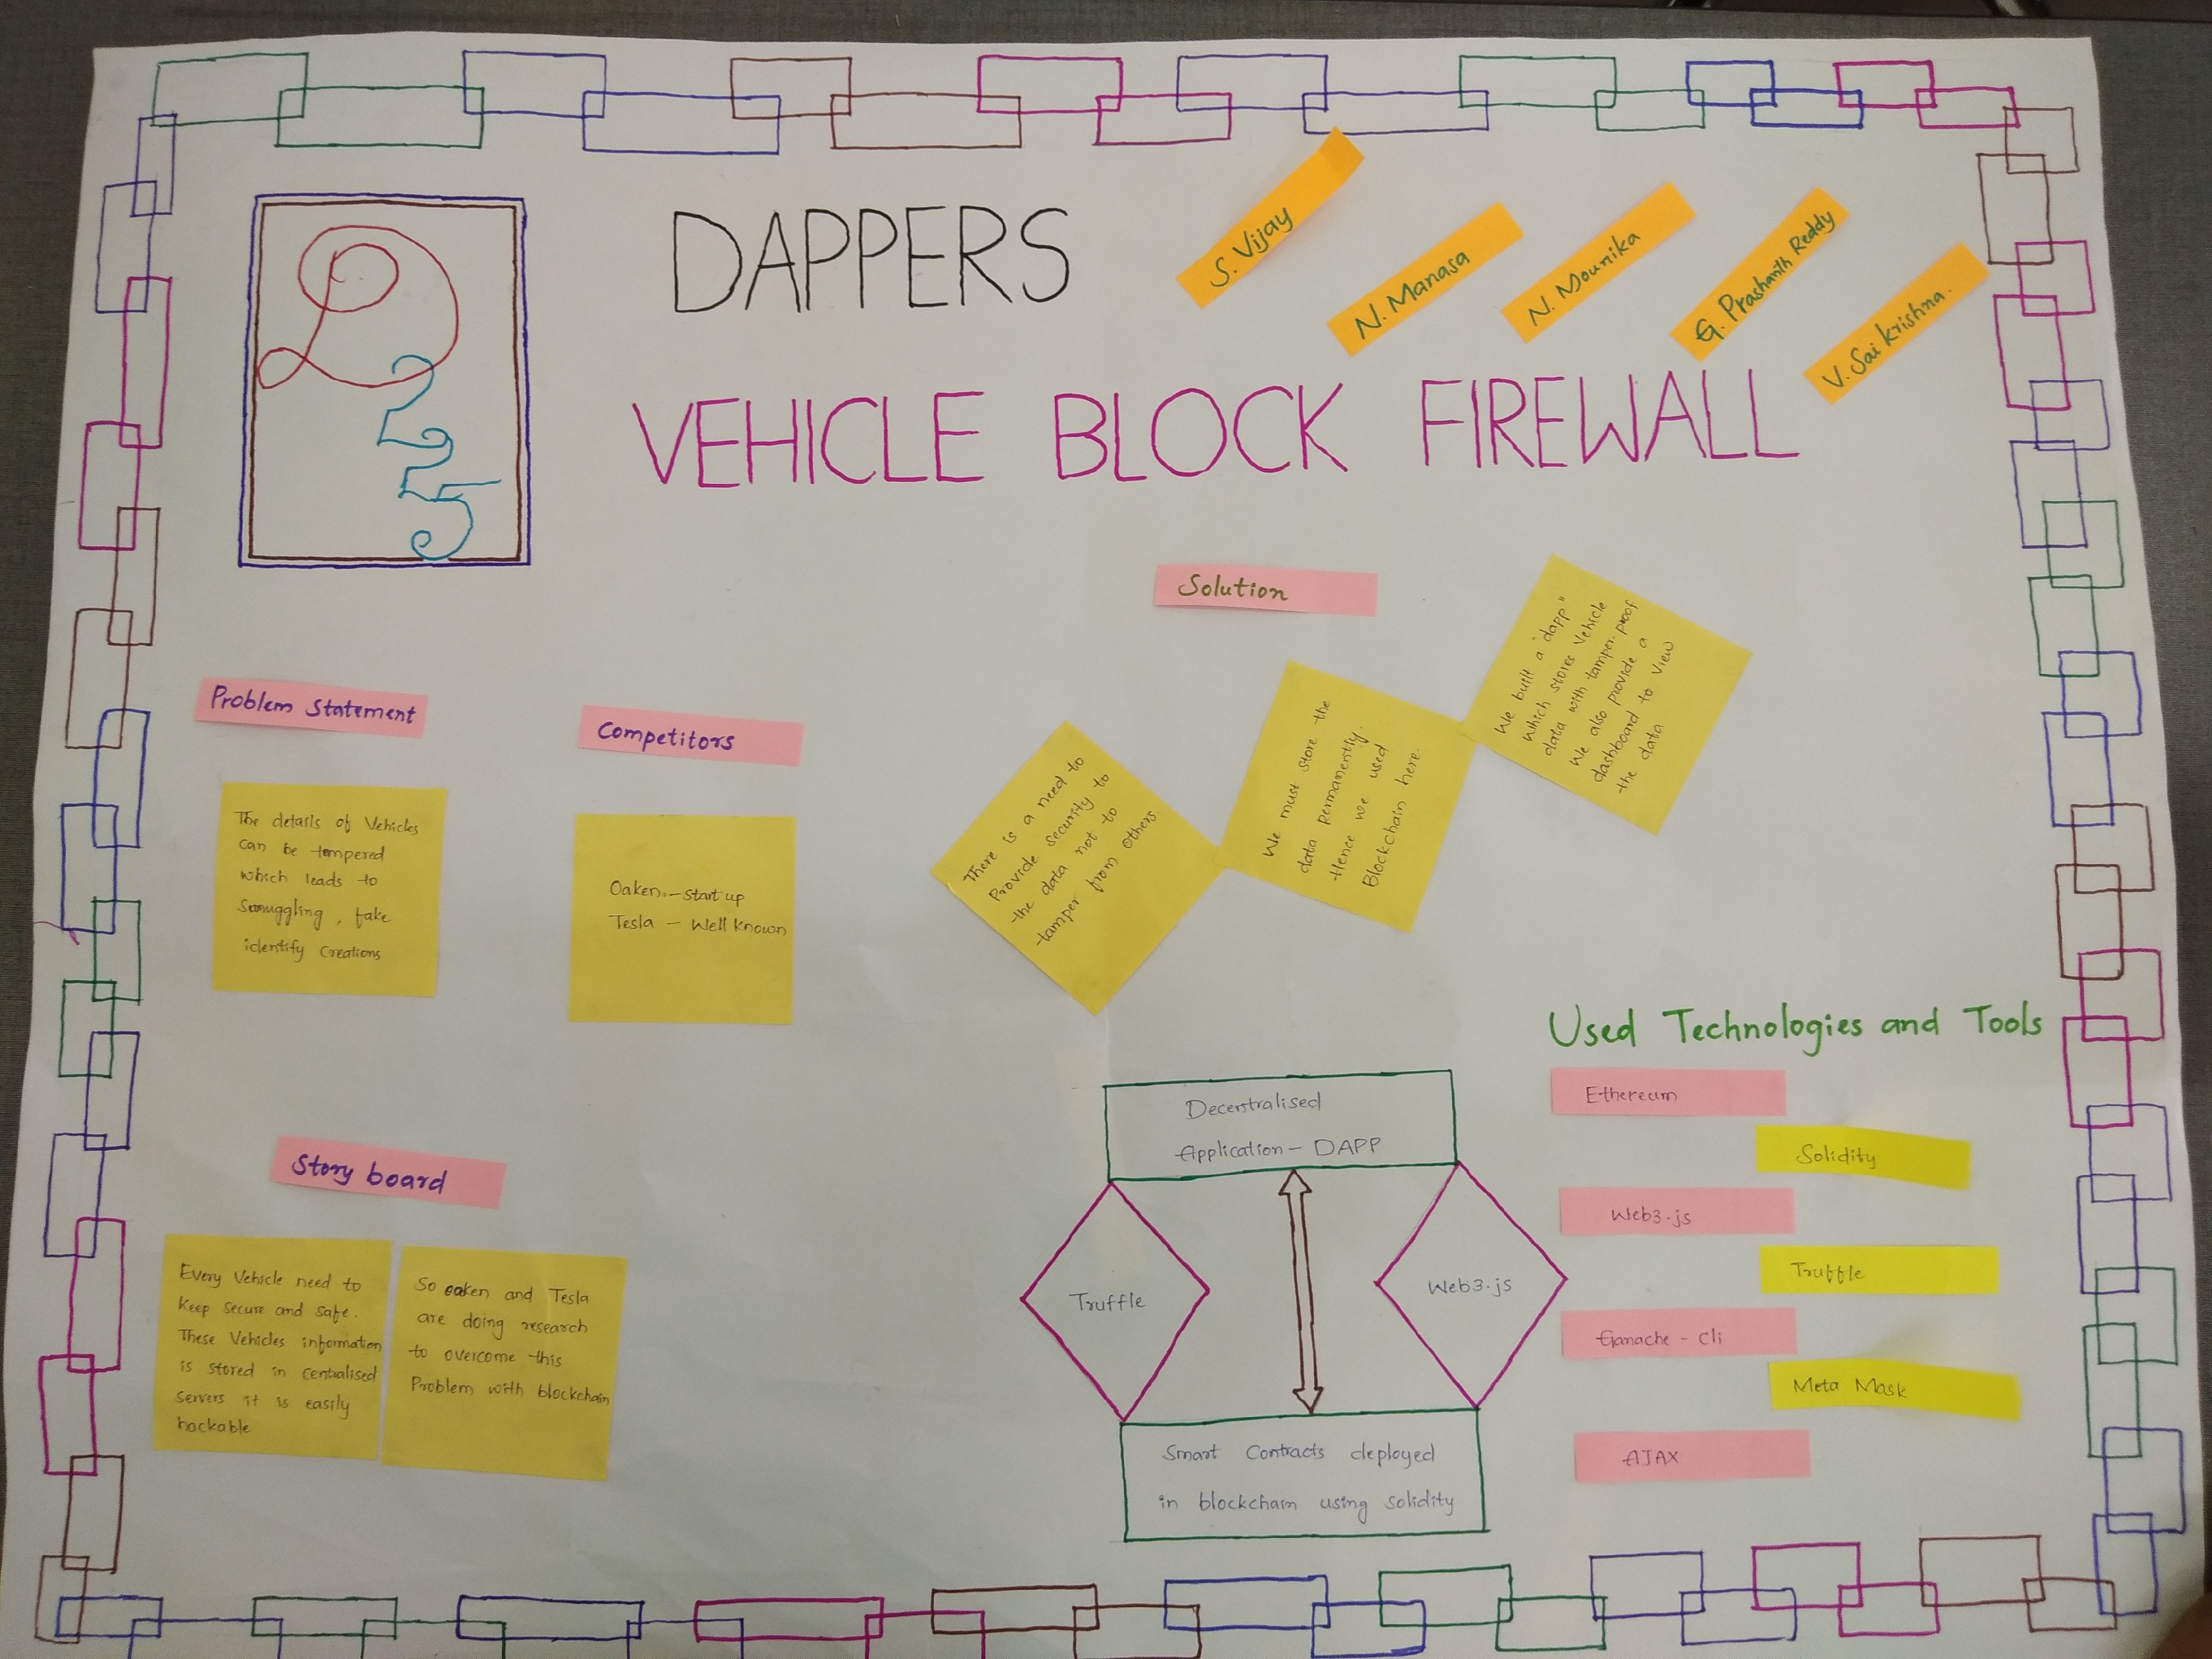 D
2
2
5
DAPPERS
S. Vijay
N. Manasa
N. Mounika
G. Prashanth Reddy
V. Sai Krishna.
VEHICLE BLOCK FIREWALL
Problem Statement
The details of Vehicles
can be tampered
which leads to
Smuggling, fake
identify Creations
Competitors
Oaken.-Start up
Tesla - Well known
Solution
There is a need to
Provide security to
the data not to
tamper from others.
We must store the
data permanently.
Hence we used
Blockchain here.
We built a "dapp"
which stores Vehicle
data with tamper-proof
We also provide a
dashboard to view
the data
Story board
Every Vehicle need to
Keep secure and safe.
These Vehicles information
is stored in centralised
servers it is easily
hackable
So oaken and Tesla
are doing research
to overcome this
Problem with blockchain
Decentralised
Application - DAPP
Truffle
Web3.js
Smart Contracts deployed
in blockchain using solidity
Used Technologies and Tools
Ethereum
Solidity
Web3.js
Truffle
Ganache - cli
Meta Mask
AJAX